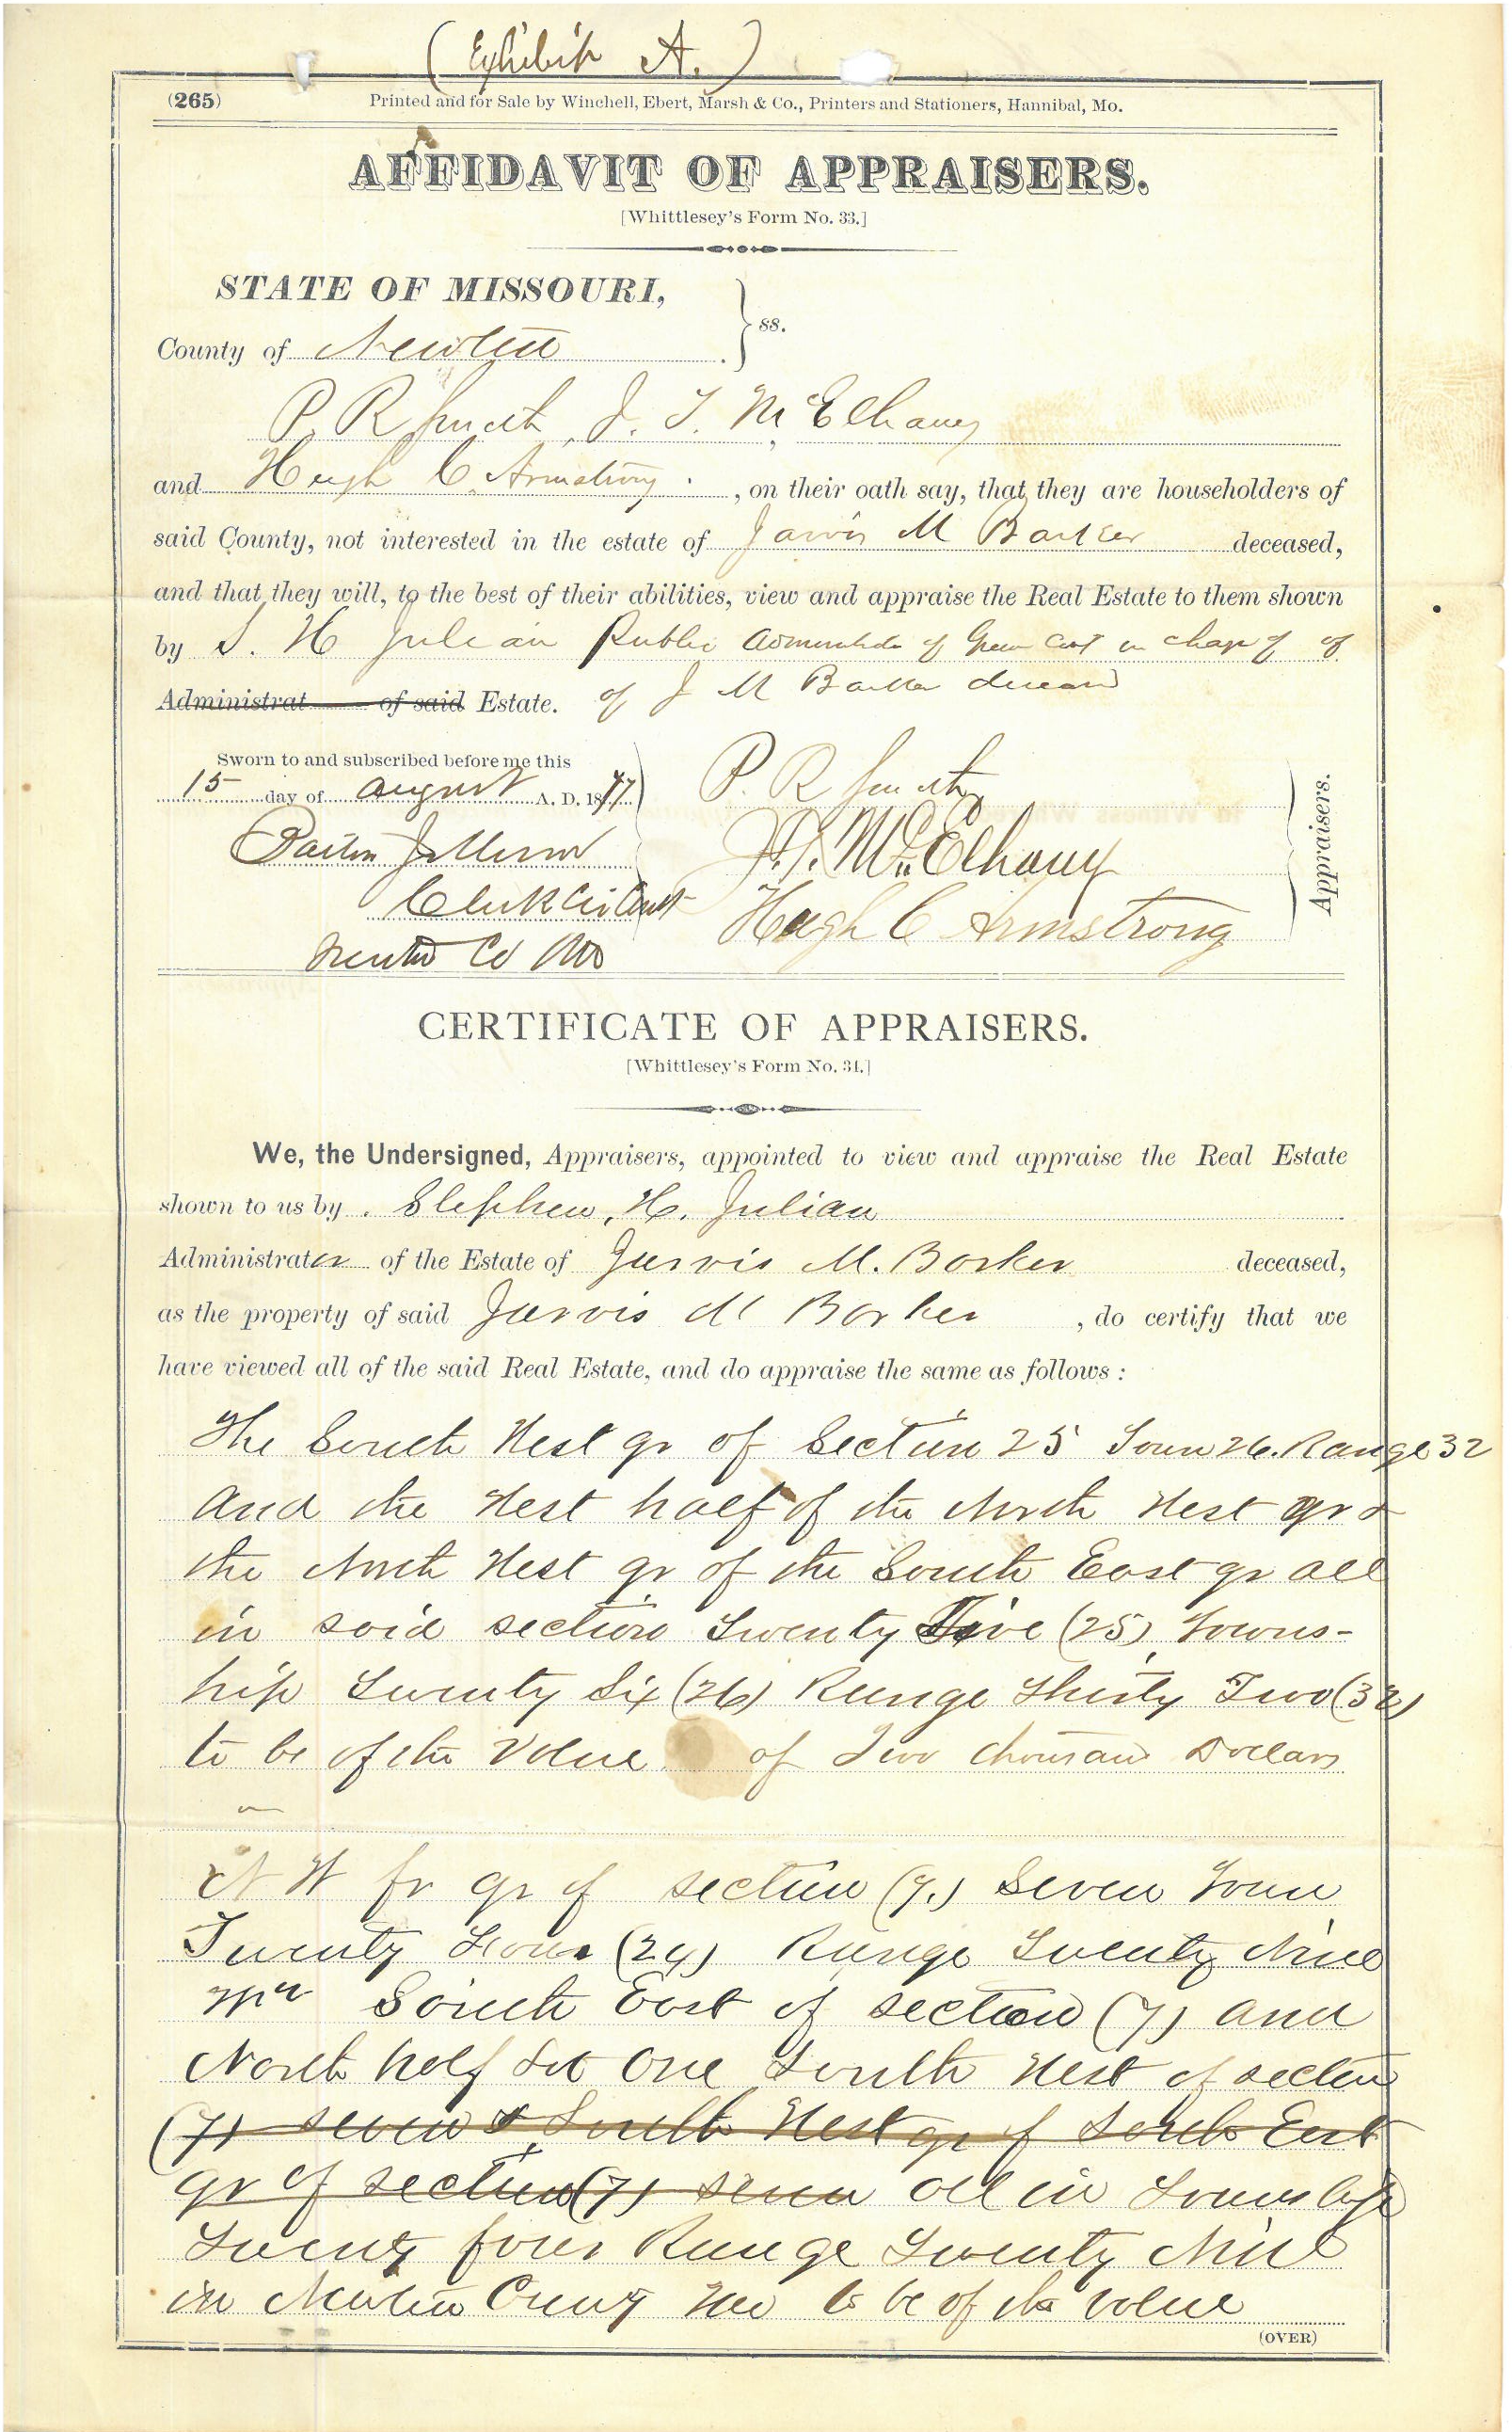 (Exhibit A.)
(265)
Printed and for Sale by Winchell, Ebert, Marsh & Co., Printers and Stationers, Hannibal, Mo.
AFFIDAVIT OF APPRAISERS.
[Whittlesey's Form No. 33.]
STATE OF MISSOURI,
ss.
County of Newton
P. R Smith, J. T. McElhany
and Hugh C. Armstrong, on their oath say, that they are householders of
said County, not interested in the estate of Jarvis M Barker deceased,
and that they will, to the best of their abilities, view and appraise the Real Estate to them shown
by S. H Julian Public Administrator of Green Co in charge of
Administrat of said Estate. of J M Barker deceased
Sworn to and subscribed before me this
15 day of August A. D. 1877
P. R Smith
J. T. McElhany
Clerk Cir Court
Hugh C Armstrong
Newton Co Mo
Appraisers.
CERTIFICATE OF APPRAISERS.
[Whittlesey's Form No. 34.]
We, the Undersigned, Appraisers, appointed to view and appraise the Real Estate
shown to us by Stephen, H. Julian
Administrator of the Estate of Jarvis M. Barker deceased,
as the property of said Jarvis M Barker, do certify that we
have viewed all of the said Real Estate, and do appraise the same as follows:
The South West qr of Section 25 Town 26. Range 32
and the West half of the North West qr &
the North West qr of the South East qr all
in said section Twenty Five (25) Towns-
hip Twenty Six (26) Range Thirty Two (32)
to be of the Value of Two thousand Dollars
N W fr qr of section (7.) Seven Town
Twenty Four (24) Range Twenty Nine
South East of section (7) and
North half Lot One South West of section
(7) seven & South West qr of South East
qr of section (7) seven all in Township
Twenty four Range Twenty Nine
in Newton County Mo to be of the Value
(OVER)